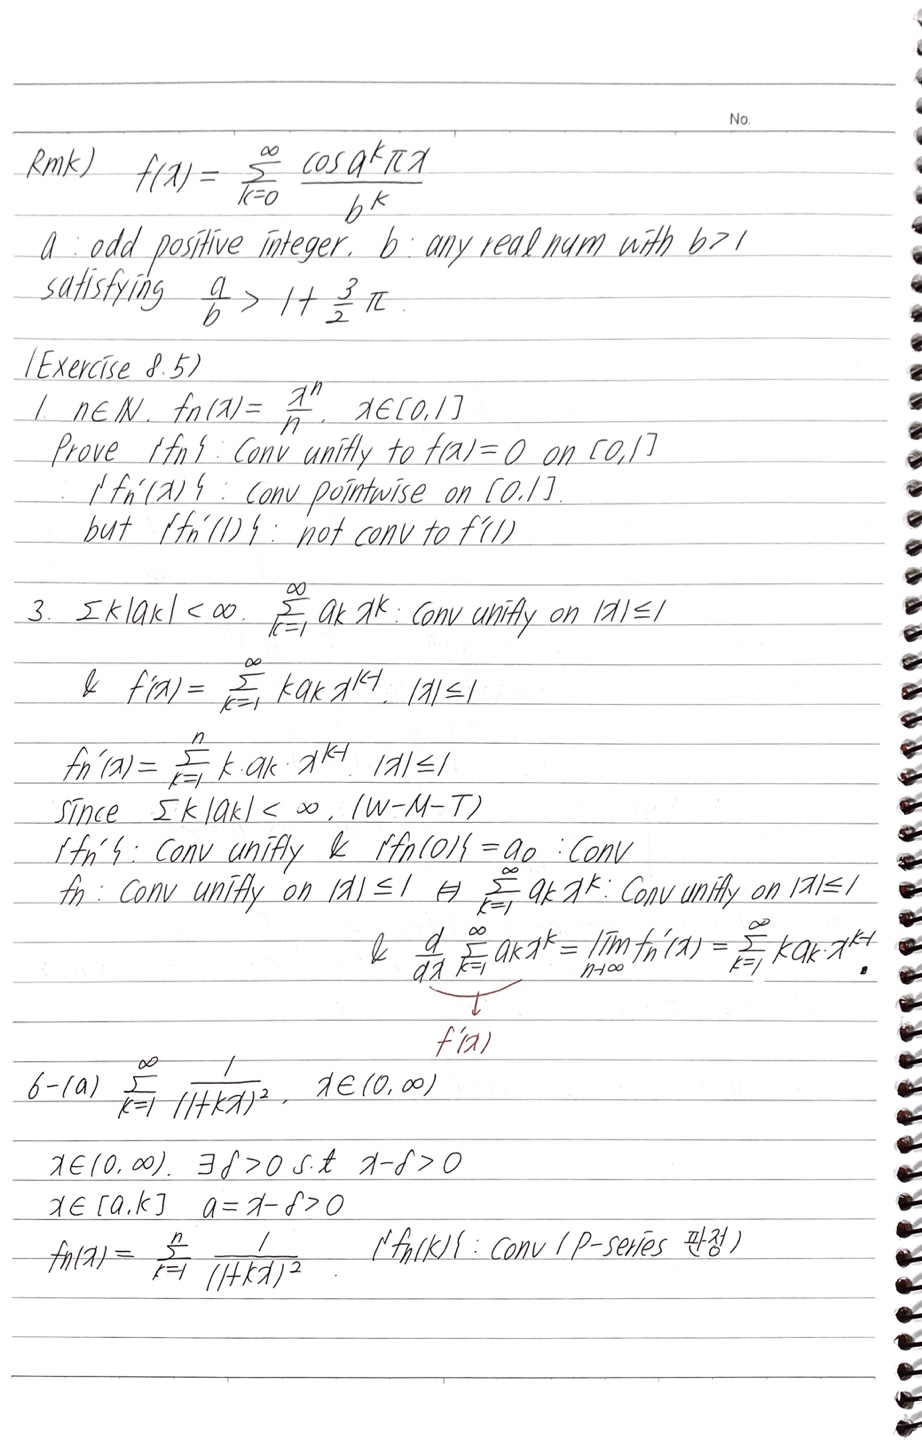 No.
Rmk) f(x) = ∞Σk=0 cos a^k πx / b^k
a : odd positive integer. b : any real num with b>1
satisfying a/b > 1 + 3/2 π.
(Exercise 8.5)
1. n∈N. fn(x) = x^n/n. x∈[0,1]
Prove {fn} : Conv unifly to f(x) = 0 on [0,1]
{fn'(x)} : conv pointwise on [0,1].
but {fn'(1)} : not conv to f'(1)
3. Σk|ak| < ∞. ∞Σk=1 ak x^k : Conv unifly on |x| ≤ 1
& f'(x) = ∞Σk=1 k ak x^k-1. |x| ≤ 1
fn'(x) = nΣk=1 k·ak·x^k-1. |x| ≤ 1
since Σk|ak| < ∞. (W-M-T)
{fn'} : Conv unifly & {fn(0)} = a0 : Conv
fn : Conv unifly on |x| ≤ 1 ⇔ ∞Σk=1 ak x^k : Conv unifly on |x| ≤ 1
& d/dx ∞Σk=1 ak x^k = lim n→∞ fn'(x) = ∞Σk=1 k ak·x^k-1.
f'(x)
6-(a) ∞Σk=1 1/(1+kx)^2. x∈(0,∞)
x∈(0,∞). ∃δ>0 s.t x-δ>0
x∈[a,k] a = x-δ>0
fn(x) = nΣk=1 1/(1+kx)^2. {fn(k)} : Conv (P-series 판정)